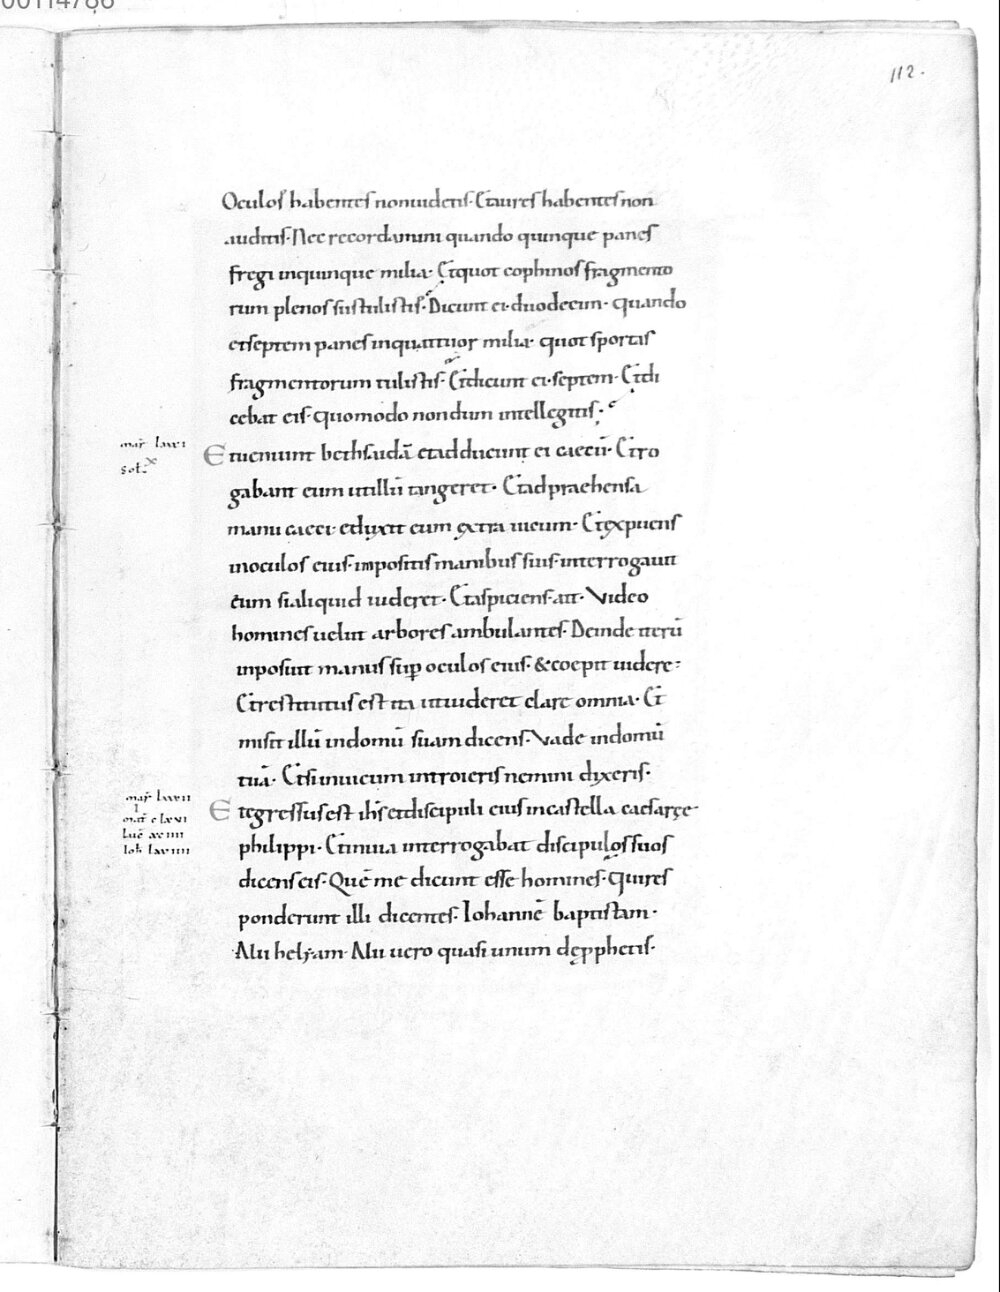 00114786
112.
Oculos habentes non uidetis· Et aures habentes non
auditis· Nec recordamini quando quinque panes
fregi inquinque milia· Et quot cophinos fragmento
rum plenos sustulistis· Dicunt ei· duodecim· quando
et septem panes in quattuor milia· quot sportas
fragmentorum tulistis· Et dicunt ei· septem· Et di
cebat eis· quomodo nondum intellegitis·
mar̄ lxxvi
sol·
Et ueniunt bethsaidā et adducunt ei caecū· Et ro
gabant eum ut illū tangeret· Et adpraehensa
manu caeci· eduxit eum extra uicum· Et expuens
inoculos eius· impositis manibus suis· interrogauit
eum si aliquid uideret· Et aspiciens· ait· Video
homines uelut arbores ambulantes· Deinde iterū
inposuit manus sup̄ oculos eius· & coepit uidere·
Et restitutus est ita ut uideret clare omnia· Et
misit illū indomū suam dicens· Vade indomū
tuā· Et si inuicum introieris nemini dixeris·
mar̄ lxxvii
mat̄ clxvi
Luc̄ xciiii
Ioh lxxiiii
Et egressus est ihs̄ et discipuli eius incastella caesaręę
philippi· Et inuia interrogabat discipulos suos
dicens eis· Quē me dicunt esse homines· Qui res
ponderunt illi dicentes· Iohannē baptistam·
Alii heliam· Alii uero quasi unum de p̱phetis·